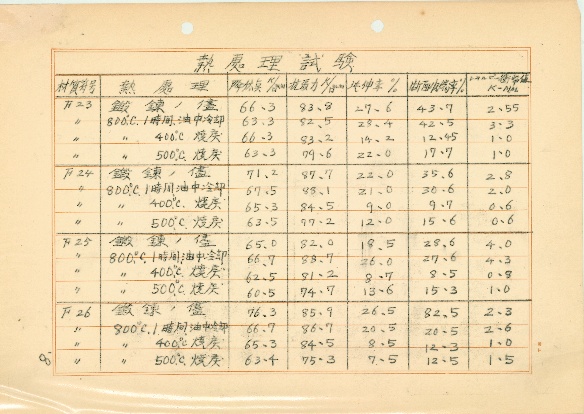 熱處理試驗
材質符号 熱處理 降伏点 K/□mm 抗張力 K/□mm 伸率 % 断面收縮率 % シャルピー衝擊値 K-M/cm
下23 鍛鍊ノ儘 66.3 83.8 27.6 43.7 2.55
〃 800℃.1時間.油中冷却 63.3 82.5 23.4 42.5 3.3
〃 〃 400℃ 燒戻 66.3 83.2 14.2 12.45 1.0
〃 〃 500℃. 燒戻 63.3 79.6 22.0 17.7 1.0
下24 鍛鍊ノ儘 71.2 87.7 22.0 35.6 2.8
〃 800℃.1時間油中冷却 67.5 88.1 21.0 30.6 2.0
〃 〃 400℃ 燒戻 65.3 84.5 9.0 9.7 0.6
〃 〃 500℃. 燒戻 63.5 77.2 12.0 15.6 0.6
下25 鍛鍊ノ儘 65.0 82.0 18.5 28.6 4.0
〃 800℃.1時間.油中冷却 66.7 88.7 26.0 27.6 4.3
〃 〃 400℃ 燒戻 62.5 81.2 8.7 8.5 0.8
〃 〃 500℃ 燒戻 60.5 74.7 13.6 15.3 1.0
下26 鍛鍊ノ儘 76.3 85.9 26.5 82.5 2.3
〃 800℃.1時間油中冷却 66.7 86.7 20.5 20.5 2.6
〃 〃 400℃ 燒戻 65.3 84.5 8.5 12.3 1.0
〃 〃 500℃. 燒戻 63.4 75.3 7.5 12.5 1.5
8.